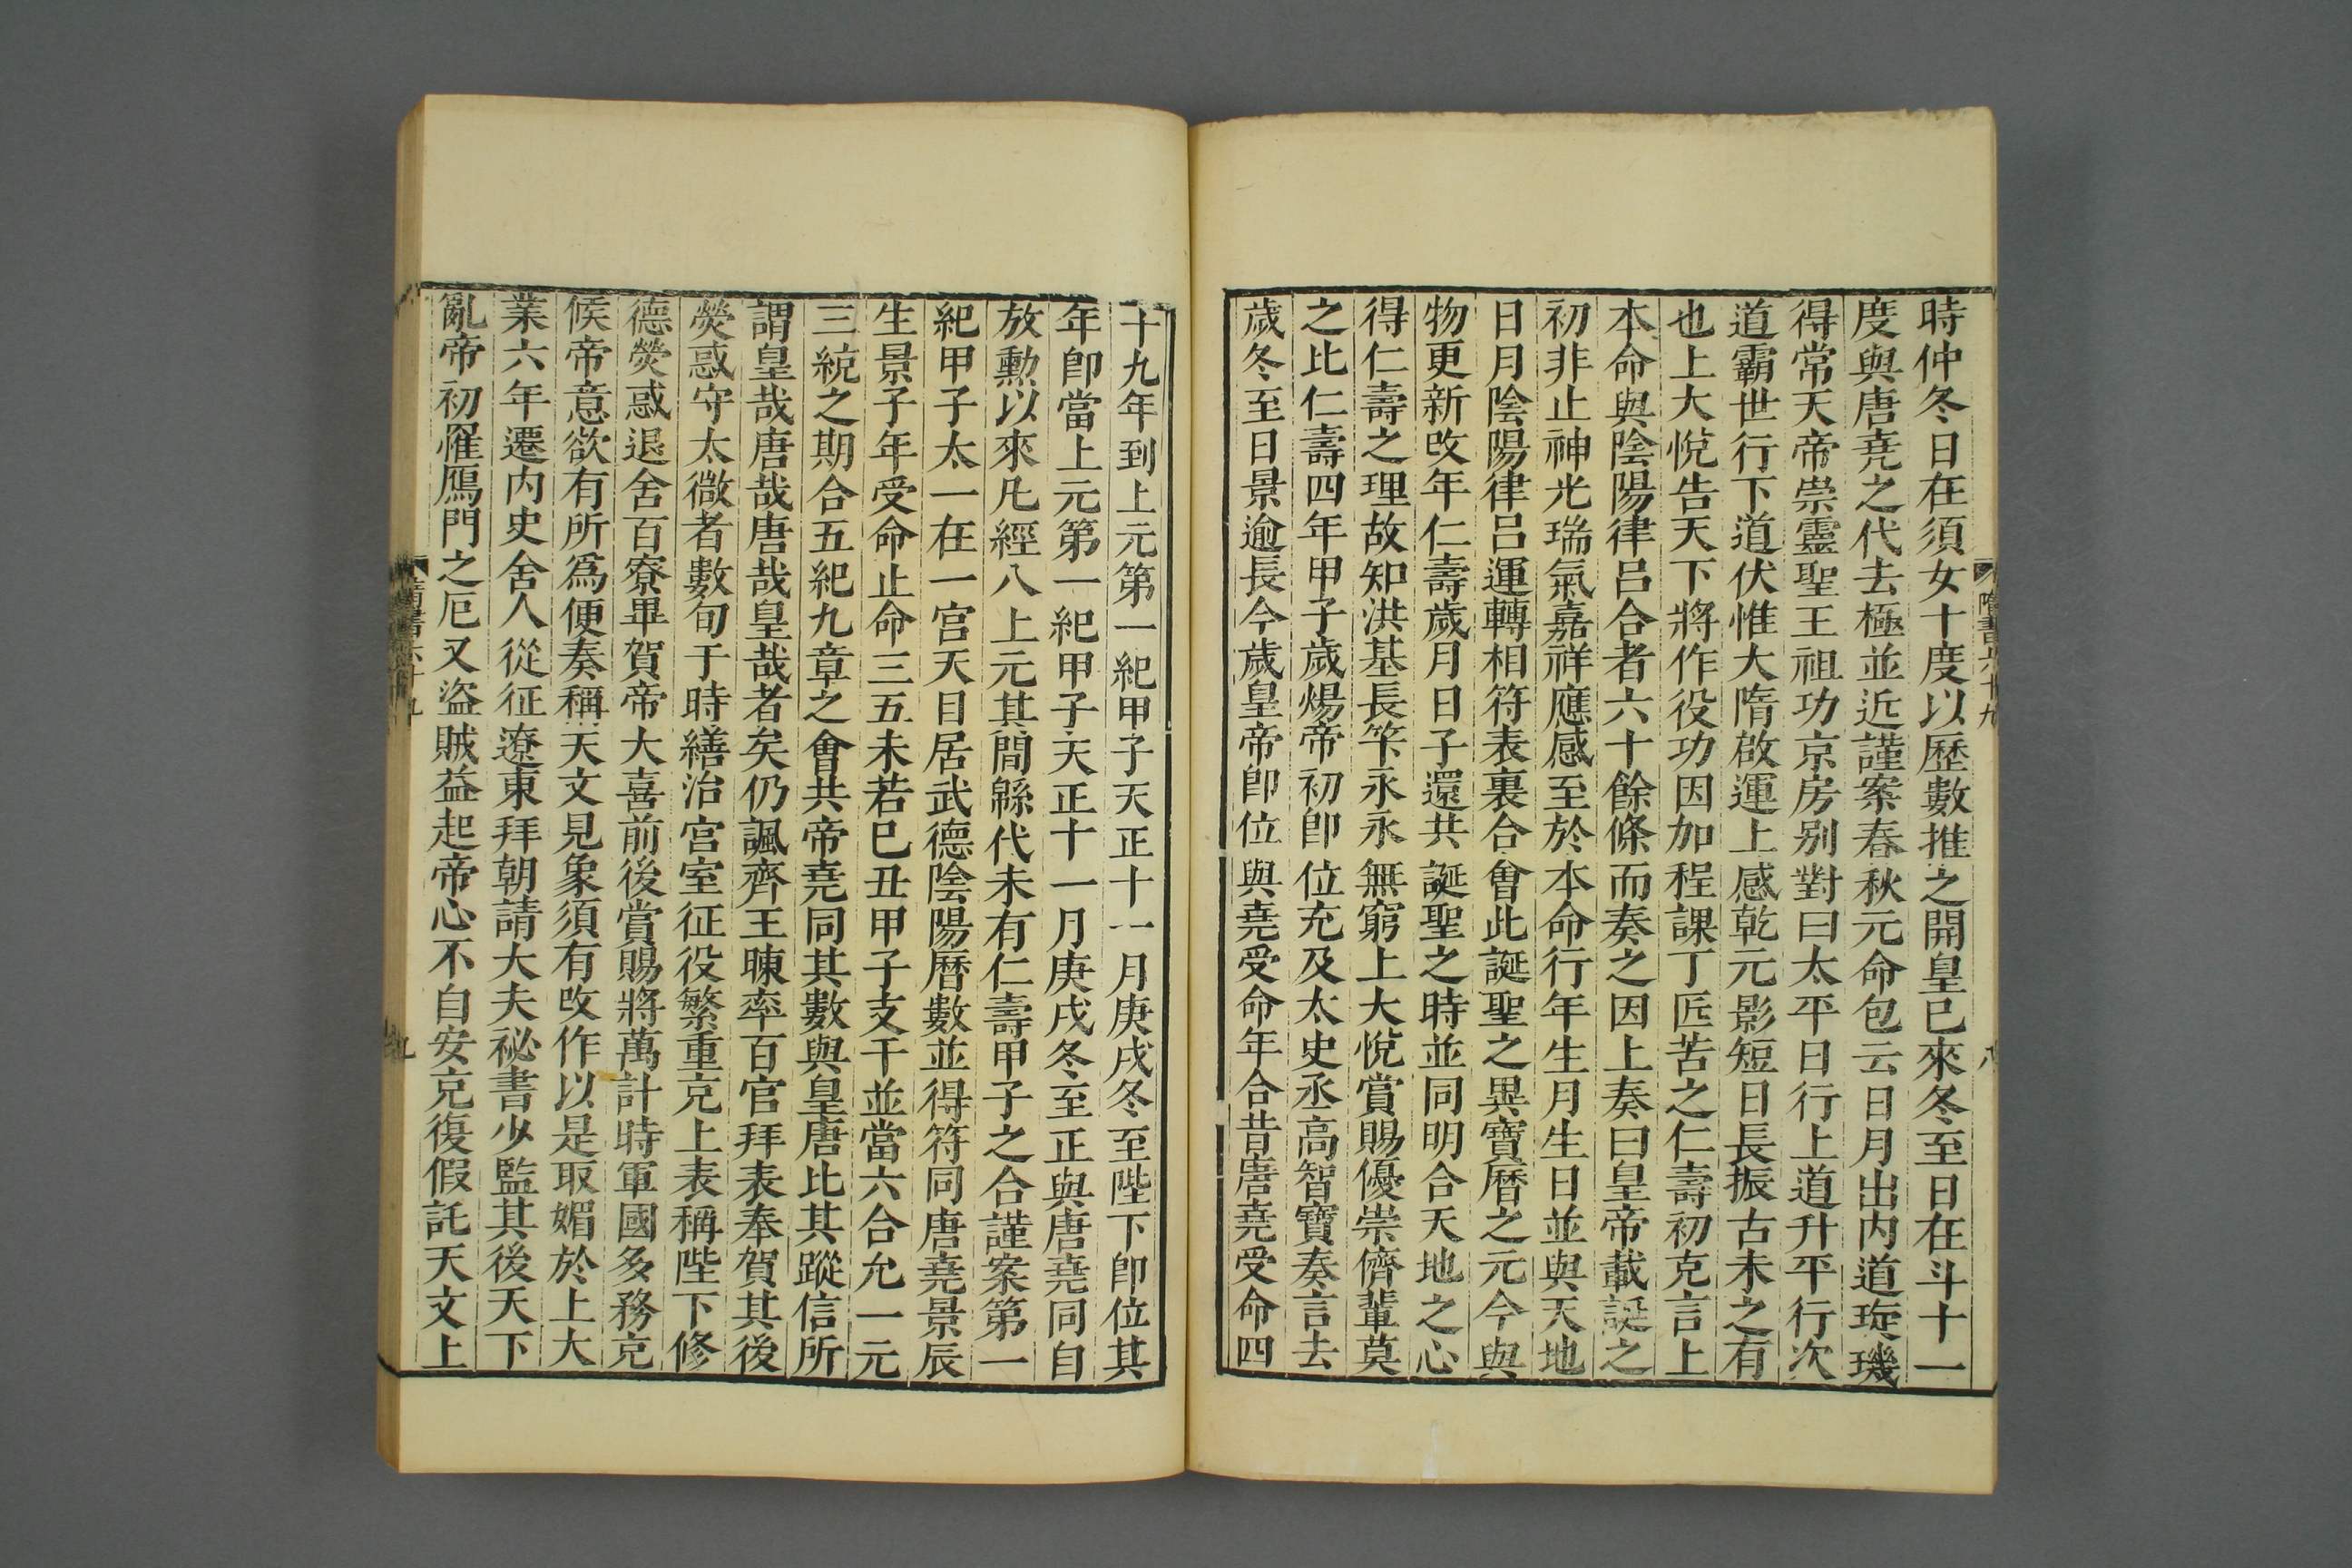 時仲冬日在須女十度以歷數推之開皇已來冬至日在斗十一
度與唐堯之代去極並近謹案春秋元命包云日月出內道琁璣
得常天帝崇靈聖王祖功京房別對曰太平日行上道升平行次
道霸世行下道伏惟大隋啟運上感乾元影短日長振古未之有
也上大悅告天下將作役功因加程課丁匠苦之仁壽初充言上
本命與陰陽律呂合者六十餘條而奏之因上奏曰皇帝載誕之
初非止神光瑞氣嘉祥應感至於本命行年生月生日並與天地
日月陰陽律呂運轉相符表裏合會此誕聖之異寶曆之元今與
物更新改年仁壽歲月日子還共誕聖之時並同明合天地之心
得仁壽之理故知洪基長筭永永無窮上大悅賞賜優崇儕輩莫
之比仁壽四年甲子歲煬帝初即位充及太史丞高智寶奏言去
歲冬至日景逾長今歲皇帝即位與堯受命年合昔唐堯受命四
十九年到上元第一紀甲子天正十一月庚戌冬至陛下即位其
年即當上元第一紀甲子天正十一月庚戌冬至正與唐堯同自
放勳以來凡經八上元其間緜代未有仁壽甲子之合謹案第一
紀甲子太一在一宮天目居武德陰陽曆數並得符同唐堯景辰
生景子年受命止命三五未若己丑甲子支干並當六合允一元
三統之期合五紀九章之會共帝堯同其數與皇唐比其蹤信所
謂皇哉唐哉唐哉皇哉者矣仍諷齊王暕率百官拜表奉賀其後
熒惑守太微者數旬于時繕治宮室征役繁重充上表稱陛下修
德熒惑退舍百寮畢賀帝大喜前後賞賜將萬計時軍國多務充
候帝意欲有所爲便奏稱天文見象須有改作以是取媚於上大
業六年遷內史舍人從征遼東拜朝請大夫祕書少監其後天下
亂帝初罹鴈門之厄又盜賊益起帝心不自安充復假託天文上
隋書六十九
八
九